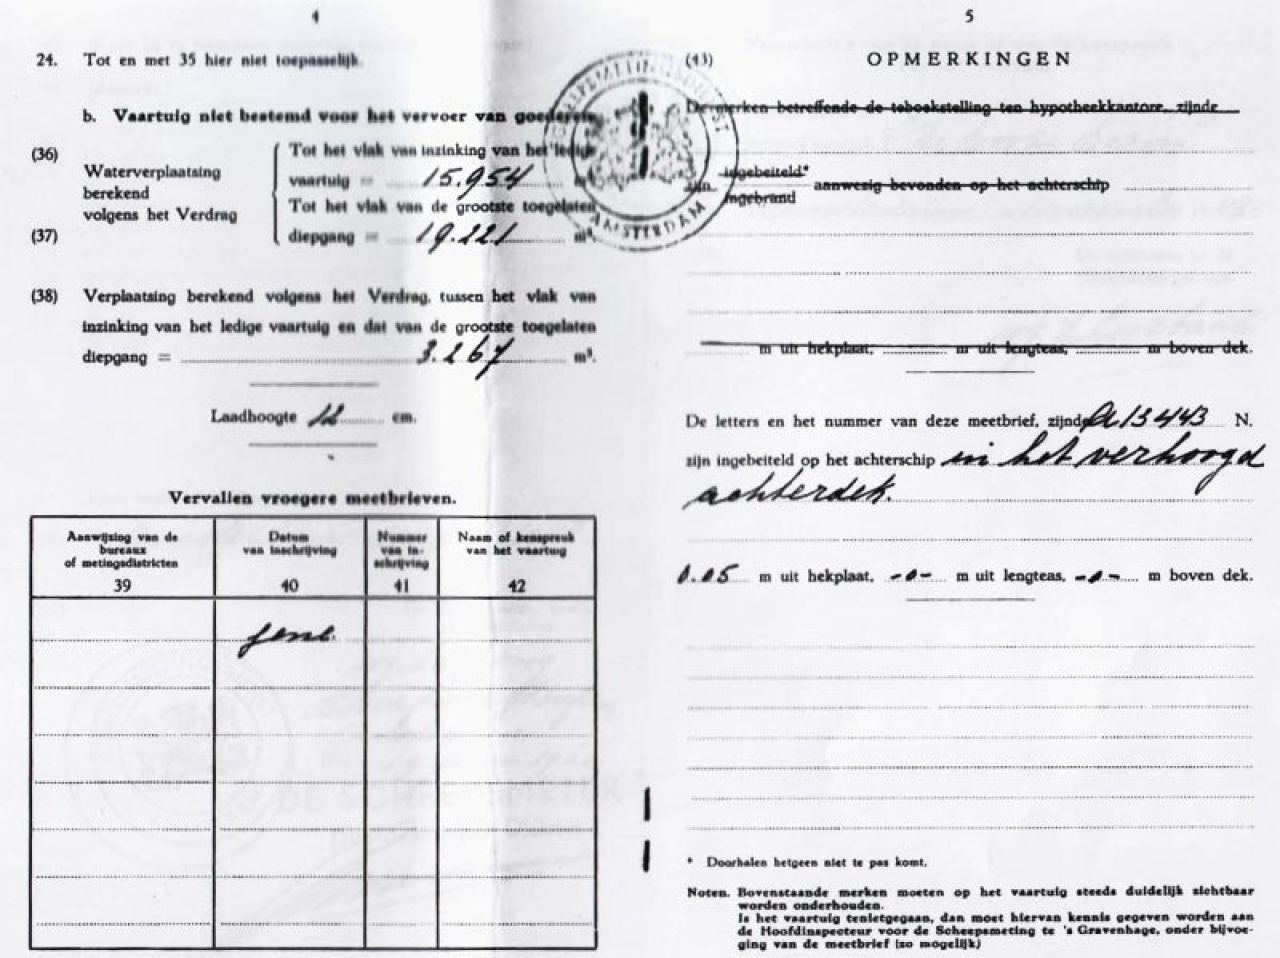 4
24. Tot en met 35 hier niet toepasselijk.
b. Vaartuig niet bestemd voor het vervoer van goederen.
(36) Waterverplaatsing berekend volgens het Verdrag
Tot het vlak van inzinking van het ledig
vaartuig = 15.954 m³.
Tot het vlak van de grootste toegelaten
(37) diepgang = 19.221 m³.
(38) Verplaatsing berekend volgens het Verdrag, tussen het vlak van
inzinking van het ledige vaartuig en dat van de grootste toegelaten
diepgang = 3.267 m³.
Laadhoogte 12 cm.
Vervallen vroegere meetbrieven.
Aanwijzing van de bureaux of metingsdistricten
39
Datum van inschrijving
40
Nummer van in-schrijving
41
Naam of kenspreuk van het vaartuig
42
SCHEEPSMETINGSDIENST
AMSTERDAM
5
(43) OPMERKINGEN
De merken betreffende de teboekstelling ten hypotheekkantore, zijnde
zijn ingebeiteld* ingebrand aanwezig bevonden op het achterschip
m uit hekplaat, m uit lengteas, m boven dek.
De letters en het nummer van deze meetbrief, zijnde A 13443 N.
zijn ingebeiteld op het achterschip in het verhoogd
achterdek.
0.05 m uit hekplaat, -0- m uit lengteas, -0- m boven dek.
* Doorhalen hetgeen niet te pas komt.
Noten. Bovenstaande merken moeten op het vaartuig steeds duidelijk zichtbaar
worden onderhouden.
Is het vaartuig tenietgegaan, dan moet hiervan kennis gegeven worden aan
de Hoofdinspecteur voor de Scheepsmeting te 's Gravenhage, onder bijvoe-
ging van de meetbrief (zo mogelijk)